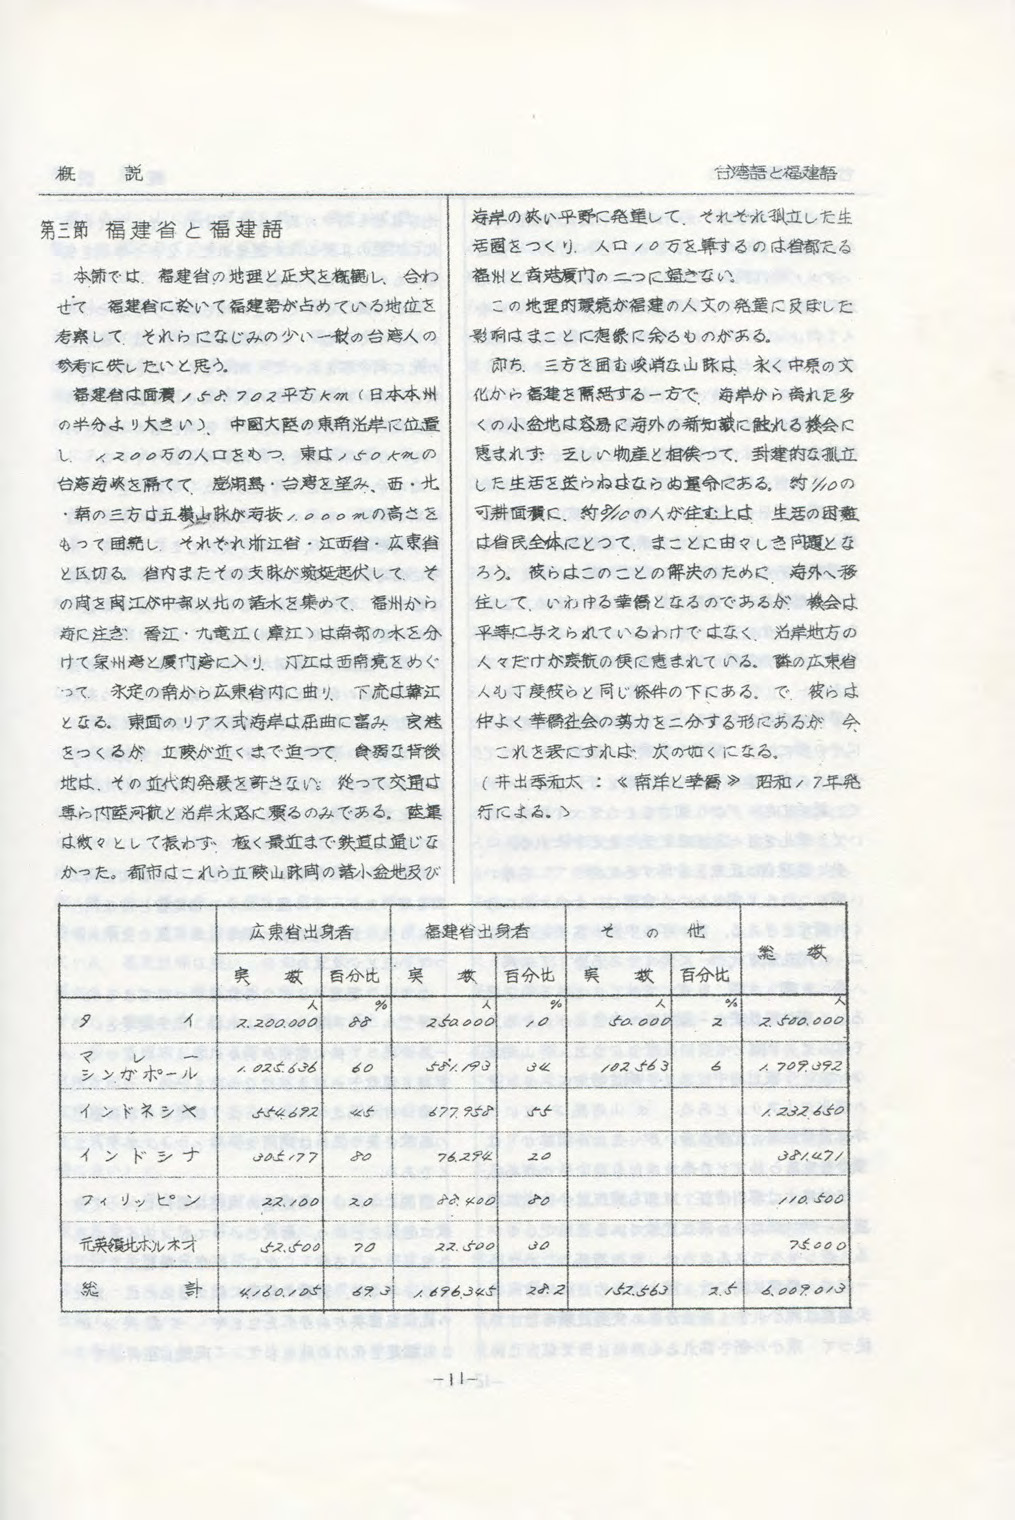 概　説
台湾語と福建語
第三節　福建省と福建語
本節では、福建省の地理と正史を概観し、合わ
せて、福建省に於いて福建語が占めている地位を
考察して、それらになじみの少い一般の台湾人の
参考に供したいと思う。
福建省は面積158,702平方km（日本本州
の半分より大きい）、中国大陸の東南沿岸に位置
し、1200万の人口をもつ。東は150kmの
台湾海峡を隔てて、澎湖島・台湾を望み、西・北
・南の三方は五嶺山脉が海抜1,000mの高さを
もって囲繞し、それぞれ浙江省・江西省・広東省
と区切る。省内またその支脉が蜿蜒起伏して、そ
の間を閩江が中部以北の諸水を集めて、福州から
海に注ぎ、晋江・九竜江（漳江）は南部の水を分
けて泉州湾と廈門湾に入り、汀江は西南境をめぐ
って、永定の南から広東省内に曲り、下流は韓江
となる。東面のリアス式海岸は屈曲に富み、良港
をつくるが、丘陵が近くまで迫って、貧弱な背後
地は、その近代的発展を許さない。従って交通は
専ら内陸河航と沿岸水路に頼るのみである。陸運
は敉々として振わず、極く最近まで鉄道は通じな
かった。都市はこれら丘陵山脉間の諸小盆地及び
海岸の狭い平野に発達して、それぞれ孤立した生
活圏をつくり、人口10万を算するのは省都たる
福州と商港廈門の二つに過ぎない。
この地理的環境が福建の人文の発達に及ぼした
影响はまことに想像に余るものがある。
即ち、三方を囲む峻峭な山脉は、永く中原の文
化から福建を隔絶する一方で、海岸から离れた多
くの小盆地は容易に海外の新知識に触れる機会に
恵まれず、乏しい物産と相俟って、封建的な孤立
した生活を送らねばならぬ運命にある。約1/10の
可耕面積に、約9/10の人が住む上は、生活の困難
は省民全体にとって、まことに由々しき问題とな
ろう。彼らはこのことの解決のために、海外へ移
住して、いわゆる華僑となるのであるが、機会は
平等に与えられているわけではなく、沿岸地方の
人々だけが渡航の便に恵まれている。隣の広東省
人も丁度彼らと同じ條件の下にある。で、彼らは
仲よく華僑社会の勢力を二分する形にあるが、今
、これを表にすれば、次の如くになる。
（井出季和太：《南洋と華僑》　昭和17年発
行による。）
広東省出身者　福建省出身者　その他　総数
実数　百分比　実数　百分比　実数　百分比
人　%　人　%　人　%　人
タイ　2,200,000　88　250,000　10　50,000　2　2,500,000
マレー
シンガポール　1,025,636　60　581,193　34　102,563　6　1,709,392
インドネシヤ　554,692　45　677,958　55　1,232,650
インドシナ　305,177　80　76,294　20　381,471
フィリッピン　22,100　20　88,400　80　110,500
元英領北ボルネオ　52,500　70　22,500　30　75,000
総計　4,160,105　69.3　1,696,345　28.2　152,563　2.5　6,009,013
－11－